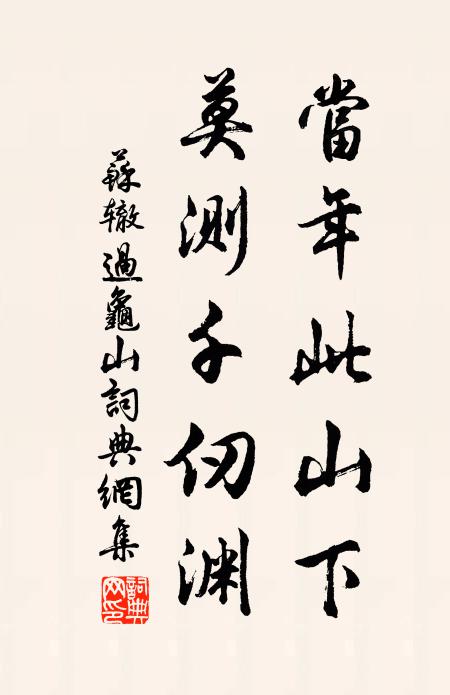 當年此山下
莫測千仞渊
蘇辙過龜山詞典網集
詞典网印